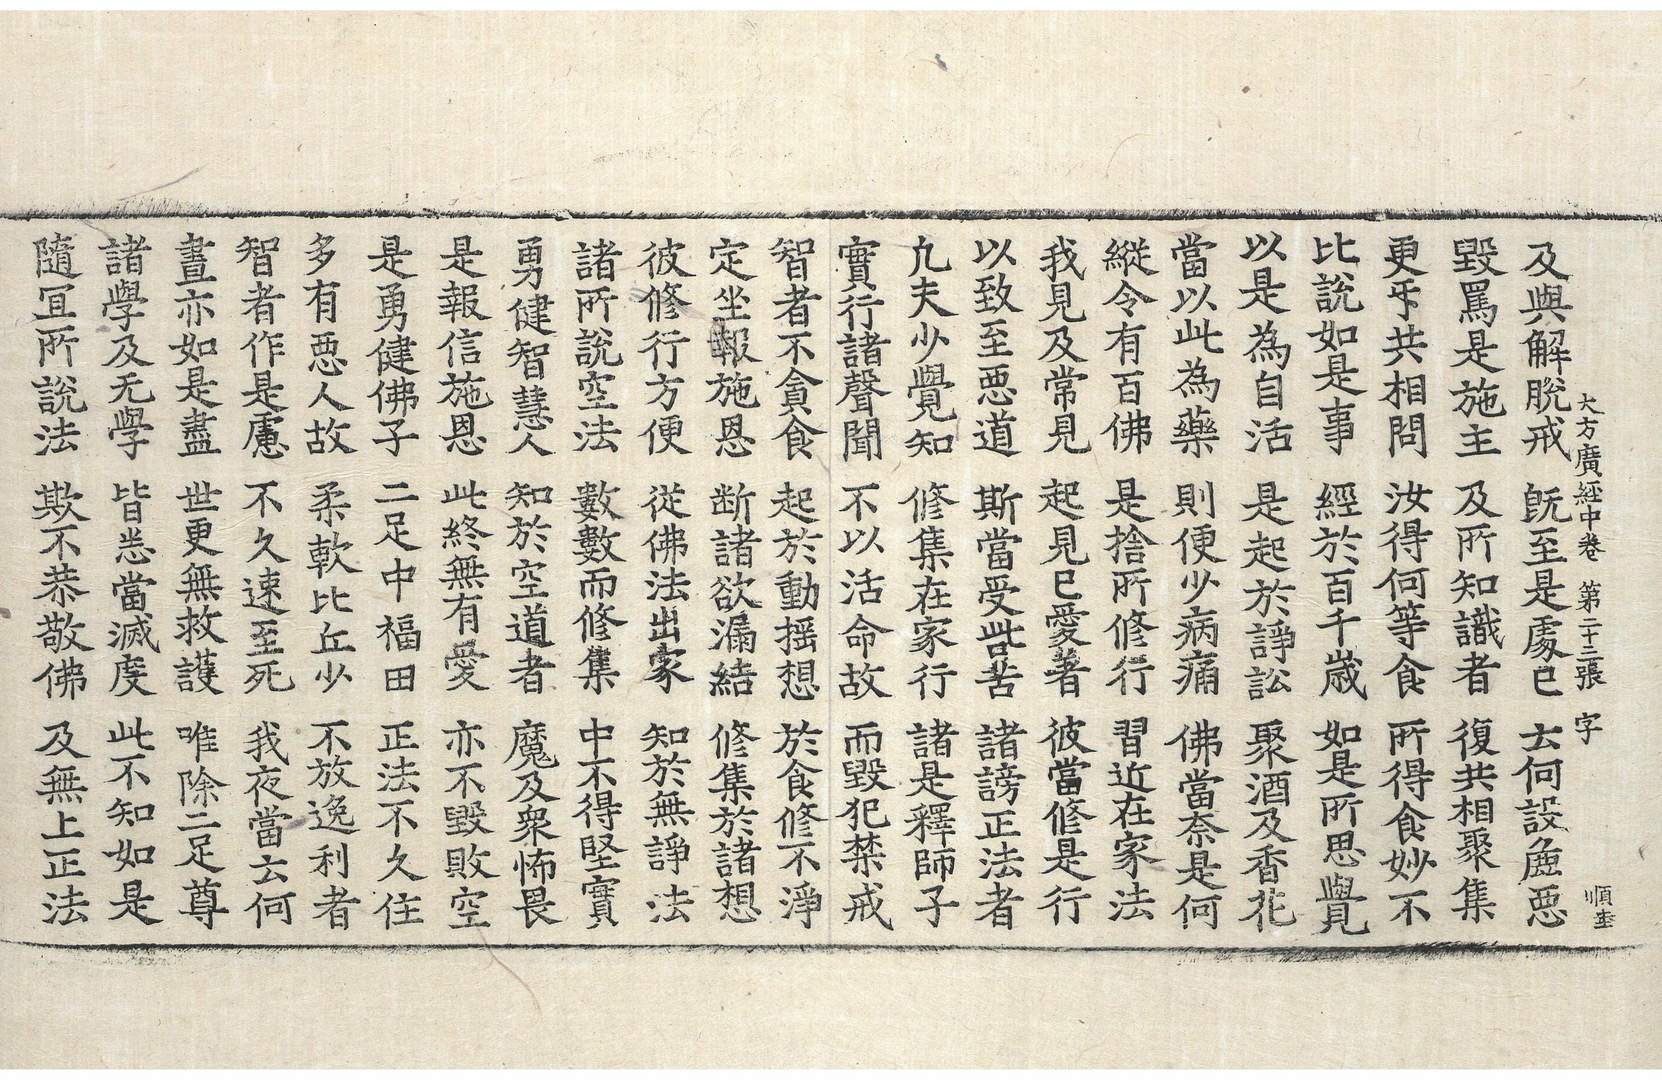 大方廣經中卷 第二十三張 字 順李
及與解脫戒 既至是處已 云何設麁惡
毀罵是施主 及所知識者 復共相聚集
更㸦共相問 汝得何等食 所得食妙不
比說如是事 經於百千歲 如是所思覺
以是為自活 是起於諍訟 聚酒及香花
當以此為藥 則便少病痛 佛當奈是何
縱令有百佛 是捨所修行 習近在家法
我見及常見 起見已愛著 彼當修是行
以致至惡道 斯當受呰苦 諸謗正法者
凢夫少覺知 修集在家行 諸是釋師子
實行諸聲聞 不以活命故 而毀犯禁戒
智者不貪食 起於動揺想 於食修不淨
定坐報施恩 断諸欲漏結 修集於諸想
彼修行方便 從佛法出家 知於無諍法
諸所說空法 數數而修集 中不得堅實
勇健智慧人 知於空道者 魔及衆怖畏
是報信施恩 此終無有愛 亦不毀敗空
是勇健佛子 二足中福田 正法不久住
多有惡人故 柔軟比丘少 不放逸利者
智者作是慮 不久速至死 我夜當云何
晝亦如是盡 世更無救護 唯除二足尊
諸學及无學 皆悉當滅度 此不知如是
隨冝所說法 欺不恭敬佛 及無上正法